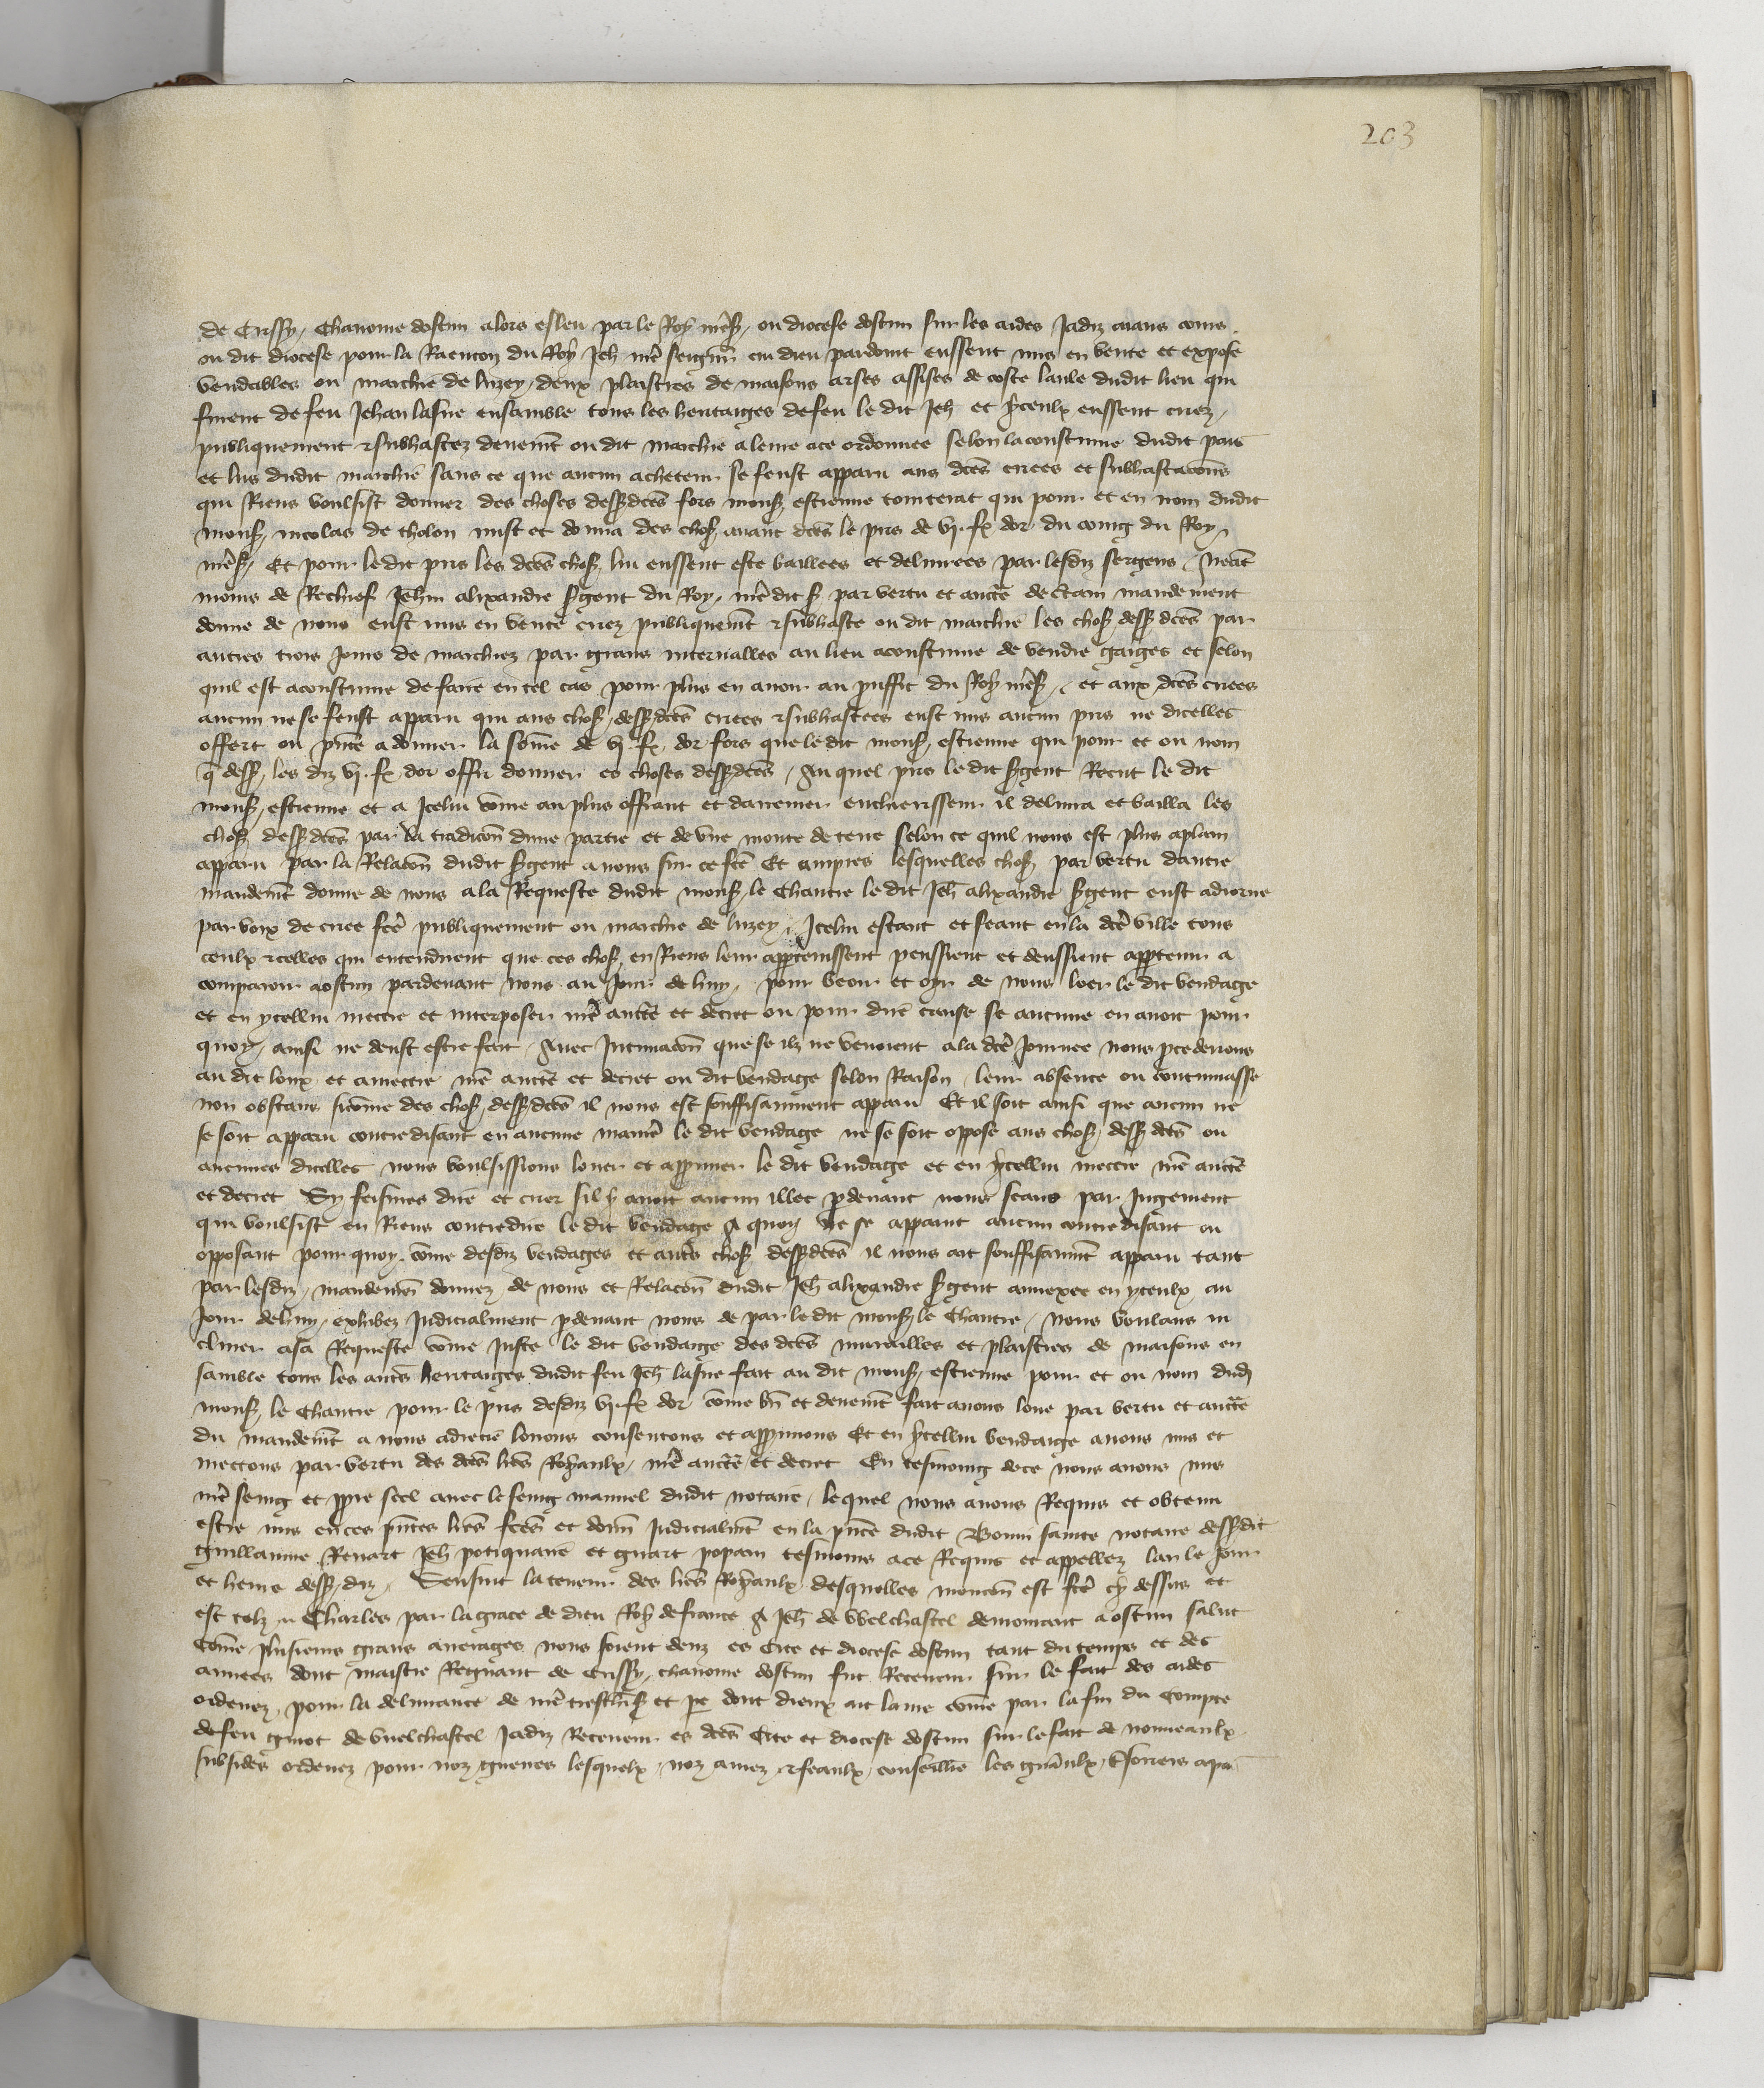 203
de Cussy, Chanoine dostun alors esleu par le Roy nr̃e s, ou diocese dostun sur les aides Jadiz aians cours
ou dit diocese pour la Raencon du Roy Jeh nr̃e seign̄r cui dieu pardoint eussent mis en vente et expose
vendables ou marchie de luzey, deux plaistres de maisons arses assises de coste laule dudit lieu qui
furent de feu Jehan lasne ensamble tous les heritaiges de feu le dit Jeh et yceulx eussent criez,
publiquement & subhastez deuem̄t ou dit marchie a leure a ce ordonnee selon la coustume dudit pais
et lus dudit marchie sans ce que aucun acheteur se feust apparu aus dc̃es criees et subhastacōns
qui Riens voulsist donner des choses dess dc̃es fors mons estienne tointerat qui pour et en nom dudit
mons, nicolas de tholon mist et donna des chos auant dc̃es le pris de vj. fx dor du coing du Roy,
nr̃e s, Et pour le dit pris les dc̃es chos, lui eussent este baillees et deliurees par lesdiz sergens, Neāt
moins de Rechief Jehin alixandre s̃gent du Roy, nr̃e dit s par vertu et auct̃e de c̃tain mandement
donne de nous eust mis en vente criez publiquem̄t & subhaste ou dit marchie les chos dess dc̃es par
autres trois jours de marchiez par grans interualles au lieu acoustume de vendre gaiges et selon
quil est acoustume de faire en tel cas pour plus en auoir au p̃uffit du Roy nr̃e s, et aux dc̃es criees
aucun ne se feust apparu qui aus chos, dess dc̃es criees & subhastees eust mis aucun pris ne dicelles
offert ou p̃nte a donner la sōme de vj. fx, dor fors que le dit mons, estienne qui pour et ou nom
q̃ dess, les diz vj. fx, dor offri donner es choses dess dc̃es, Au quel pris le dit s̃gent Recut le dit
mons, estienne et a Jcelui cōme au plus offrant et darrenier encherisseur il deliura et bailla les
chos dess dc̃es par la tradicōn dune partie et de vne motte de terre selon ce quil nous est plus aplain
apparu par la Relacōn dudit s̃gent a nous sur ce fc̃e Et empres lesquelles chos, par vertu dautre
mandem̄t donne de nous a la Requeste dudit mons, le Chantre le dit Jeh alixandre s̃gent eust adiorne
par voix de criee fc̃e publiquement ou marchie de luzey, Jcelui estant et seant en la dc̃e ville tous
ceulx & celles qui entendirent que ces chos, en Riens leur app̃tenissent peussient et deussient app̃tenir a
comparoir a ostun pardeuant nous au Jour de huy, pour veoir et oyr de nous loer le dit vendage
et en ycellui mectre et interposer nr̃e auct̃e et decret ou pour dire cause se aucune en auoit pour
quoy, ainsi ne deust estre fait, Auec Intimacōn que se ilz ne venoient a la dc̃e Journee nous p̃cederions
au dit loux et a mectre nr̃e auct̃e et decret ou dit vendage selon Raison, leur absence ou contumasse
non obstans sicōme des chos, dess dc̃es il nous est souffisamment apparu Et il soit ainsi que aucun ne
se soit apparu contredisant en aucune manie̅ le dit vendage ne se soit oppose aus chos, dess dc̃es ou
aucunes dicelles nous voulsissions louer et app̃uuer le dit vendage et en ycellui mectre nr̃e auct̃e
et decret Sy feismes dire et crier sil y auoit aucun illec p̃deuant nous seans par Jugement
qui voulsist en Riens contredire le dit vendage A quoy ne se apparut aucun contredisant ou
opposant pour quoy, cōme desdiz vendages et autr̃s chos dess dc̃es il nous ait souffisanm̄t apparu tant
par lesdiz, mandem̄s donnez de nous et Relacōn dudit Jeh alixandre s̃gent annexee en yceulx au
Jour de huy, exhibez Judicialment p̃deuant nous de par le dit mons, le Chantre, Nous voulans in
cliner a sa Requeste cōme Juste le dit vendaige des dc̃es murailles et plaistres de maisons en
samble tous les autr̃s heritaiges dudit feu Jeh lasne fait au dit mons, estienne pour et ou nom dud
mons, le Chantre pour le pris desdiz vj. fx dor cōme bn̄ et deuem̄t fait auons loue par vertu et auct̃e
du mandem̄t a nous adrecie louons consentons et app̃uuons Et en ycellui vendaige auons mis et
mectons par vertu des dc̃es lr̃es Royaulx, nr̃e auct̃e et decret En tesmoing de ce nous auons mis
nr̃e seing et p̃pre scel auec le seing manuel dudit notaire, lequel nous auons Requis et obtenu
estre mis en ces p̃ntes lr̃es fc̃es et donn̄ Judicialm̄t en la p̃nce dudit Bonin sainte notaire dess dit
guillaume Renart Jeh potiquaire et girart popain tesmoins a ce Requis et appellez lan le Jour
et heure dess, diz, Sensuit la teneur des lr̃es Royaulx desquelles mencōn est fc̃e cy dessus et
est telz, Charles par la grace de dieu Roy de france A Jeh de Vielchastel demourant a ostun salut
Cōme plusieurs grans arrerages nous soient deuz es Cite et diocese dostun tant du temps et des
annees dont maistre Regnaut de Cussy, chanoine dostun fut Receueur sur le fait des aides
ordenez, pour la deliurance de nr̃e treschr̃ s et pe̅ dont dieux ait lame cōme par la fin du Compte
de feu guiot de vielchastel Jadiz Receueur es dc̃es Cite et diocese dostun sur le fait de nouueaulx
subsides ordenez pour noz guerres lesquelx, noz amez & feaulx, conseillie̅ les gn̄raulx, t̃soriers a pa